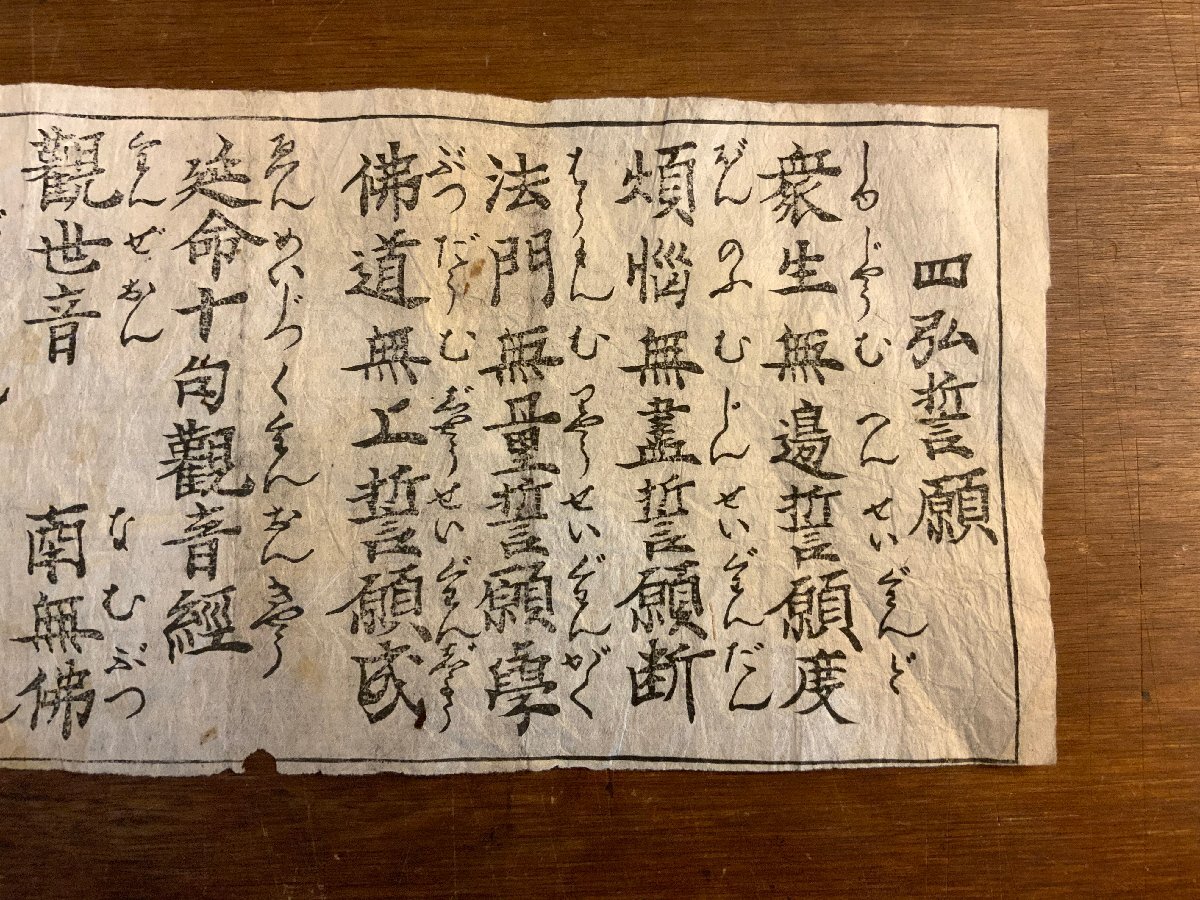 四弘誓願
しゆじやうむへんせいぐわんど
衆生無邊誓願度
ぼんのふむじんせいぐわんだん
煩惱無盡誓願断
はうもんむりやうせいぐわんがく
法門無量誓願學
ぶつだうむじやうせいぐわんじやう
佛道無上誓願成
ゑんめいじつくくわんおんきやう
延命十句觀音經
くわんぜおん　なむぶつ
觀世音　南無佛